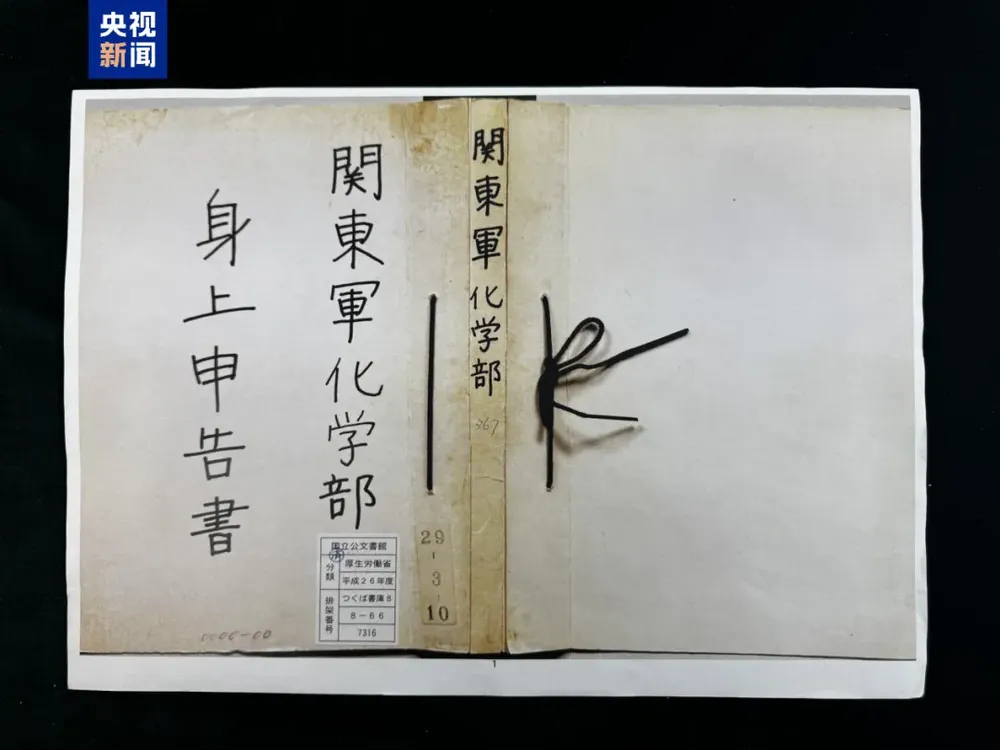 央视
新闻
関東軍化学部
身上申告書
関東軍 化学部
367
29
-
3
-
10
国立公文書館
分類
厚生労働省
平成26年度
排架番号
つくば書庫8
8-66
7316
1